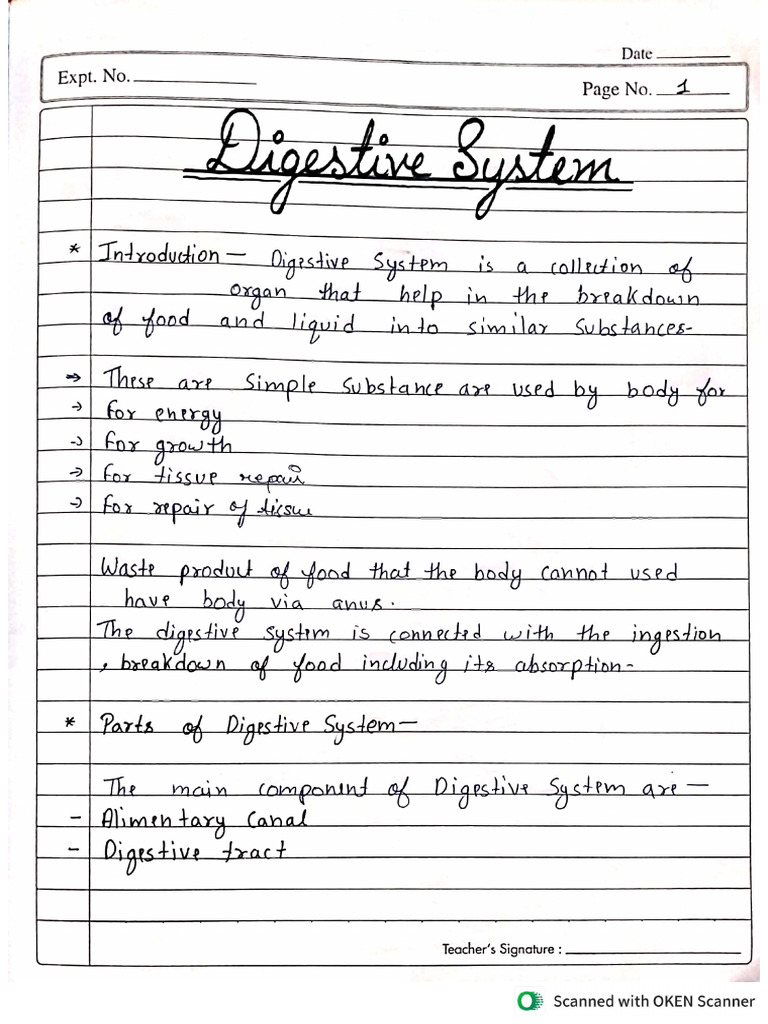 Date
Expt. No.
Page No. 1
Digestive System
* Introduction — Digestive System is a collection of
organ that help in the breakdown
of food and liquid into similar substances-
⇒ These are simple substance are used by body for
→ for energy
→ for growth
→ for tissue repair
→ for repair of tissu
Waste product of food that the body cannot used
have body via anus.
The digestive system is connected with the ingestion
, breakdown of food including its absorption-
* Parts of Digestive System—
The main component of Digestive System are —
- Alimentary Canal
- Digestive tract
Teacher's Signature :
Scanned with OKEN Scanner